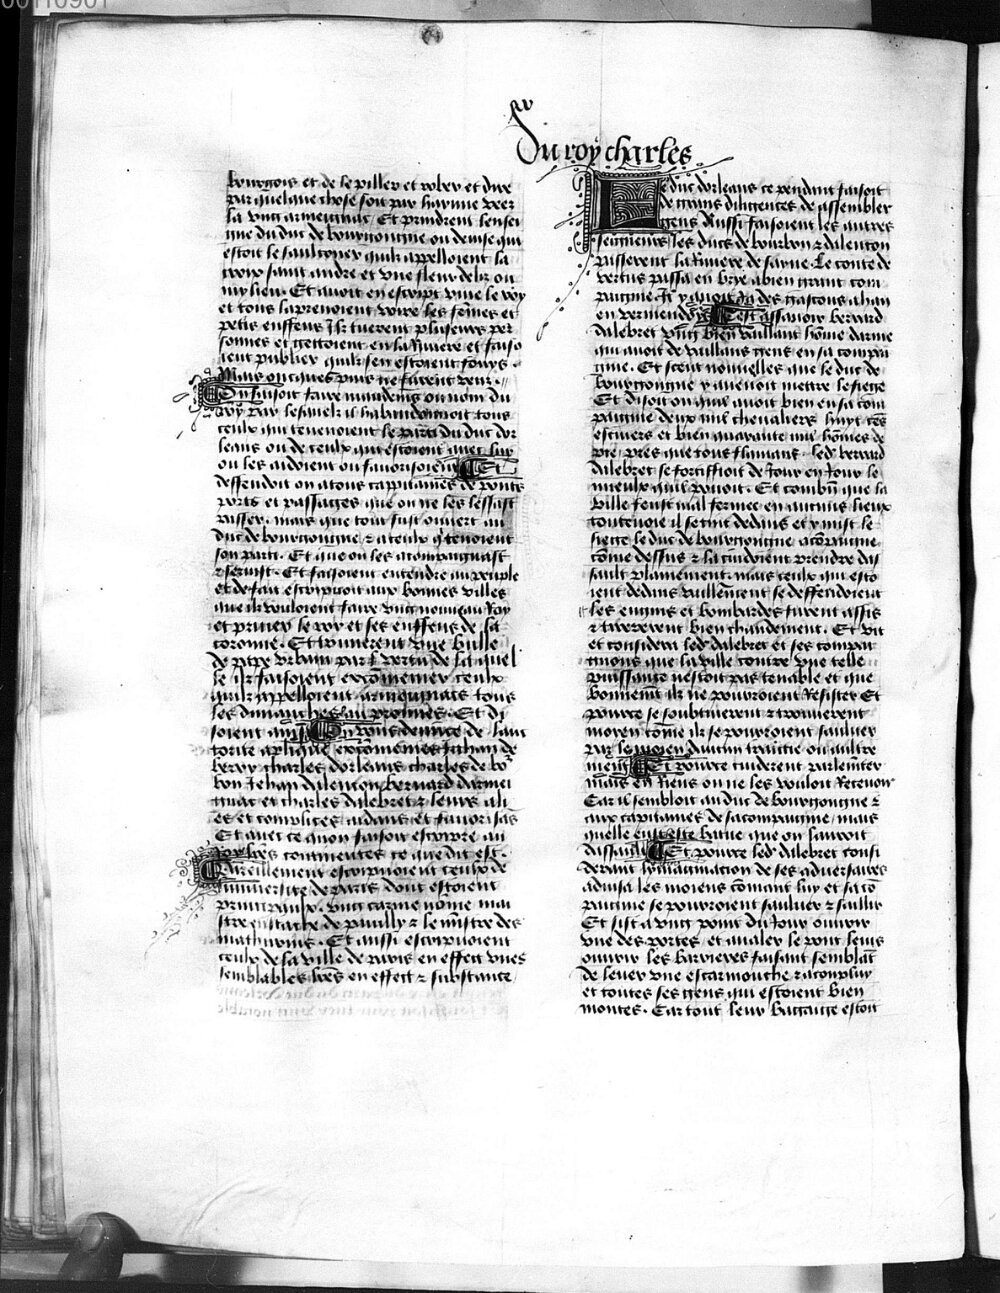 00110901
xv
Du roy charles
bourgois et de le piller et rober et dire
par quelque chose soit par hayme veez
la ung armeignac Et prindrent lensei
gne du duc de bourgoingne ou deuise qui
estoit le saultoyer quilz appelloient la
croix saint andre et vne fleur de liz ou
mylieu Et auoit en escript viue le roy
et tous la prenoient voire les femes et
petis enffens Ilz tuerent plusieurs per
sonnes et gettoient en la Riuiere et faiso
ient publier quilz sen estoient fouys
Mais oncques puis ne furent veuz
On faisoit faire mandemens ou nom du
roy par lesquelz il habandonnoit tous
ceulx qui tenoient le parti du duc dor
leans ou de ceulx qui estoient auec luy
ou les aidoient ou fauorisoient Et
deffendit on a tous capitaines de pons
pors et passages que on ne les lessast
passer mais que tout fust ouuert au
duc de bourgoingne z a ceulx q tenoient
son parti Et que on les acompaignast
z seruist Et faisoient entendre au peuple
et de fait escripuoit aux bonnes villes
que ilz vouloient faire ung nouueau Roy
et priuer le roy et ses enffens de la
coronne Et trouuerent vne bulle
de pape vrbain par vertu de laquel
le ilz faisoient excomenier ceulx
quilz appelloient armignacs tous
les dimanches au prosnes Et di
soient ainsi Nous denunce de lauc
torite aplique excomenies Jehan de
berry charles dorleans charles de bo
bon Jehan dalencon bernard darmei
gnac et charles dalebret z leurs ali
es et complices aidans et fauorisas
Et auec ce quon faisoit escripre au
roy lres contenentes ce que dit est
Pareillement escripuoient ceulx de
luniuersite de paris dont estoient
principaulx ung carme nome mai
stre eustache de pauilly z le mistre des
mathurins Et aussi escripuoient
ceulx de la ville de paris en effect vnes
semblables lres en effect z substance
Le duc dorleans ce pendant faisoit
de grans diligences de assembler
gens Aussi faisoient les autres
seigneurs les ducs de bourbon z dalencon
passerent la Riuiere de sayne Le conte de
vertus passa en brye a bien grant com
paignie Et y auoit Ja des gascons a han
en vermendoys Cest assauoir bernard
dalebret ung bien vaillant home darme
qui auoit de vaillans gens en sa compai
gnie Et sceut nouuelles que le duc de
bourgoingne y venoit mettre le siege
Et disoit on quil auoit bien en sa com
paignie deux mil cheualiers huyt ces
escuiers et bien quarante mil homes de
pie pres que tous flamans led bernard
dalebret se fortiffioit de Jour en Jour le
mieulx quil pouoit Et combn que la
ville feust mal fermee en aucuns lieux
toutesuoie il se tint dedans et y mist le
siege le duc de bourgoingne acompaigne
come dessus z la cuidoient prendre das
sault plainement mais ceulx qui esto
ient dedans vaillement se deffendoient
les engins et bombardes furent assis
z tirerent bien chaudement Et vit
et considera led dalebret et ses compai
gnons que la ville contre vne telle
puissance nestoit pas tenable et que
bonnement ilz ne pouroient Resister Et
pource se soubtiuerent z trouuerent
moyen come ilz se pourroient sauluer
par le moyen daucun traictie ou aultre
ment Et pource cuiderent parlemter
mais en Riens on ne les vouloit Receuoir
Car il sembloit au duc de bourgongne z
aux capitaines de sa compaignie mais
quelle eust este batue que on lauroit
dassault Et pource led dalebret consi
derant lymaginacion de ses aduersaires
aduisa les moiens coment luy et sa co
paignie se pourroient sauluer z saillir
Et fist a ung point du Jour ouurir
vne des portes et aualer le pont leuis
ouurir les barrieres faisant semblat
de leuer vne escarmouche z acompluy
et toutes ses gens qui estoient bien
montes Car tout leur bagaige estoit